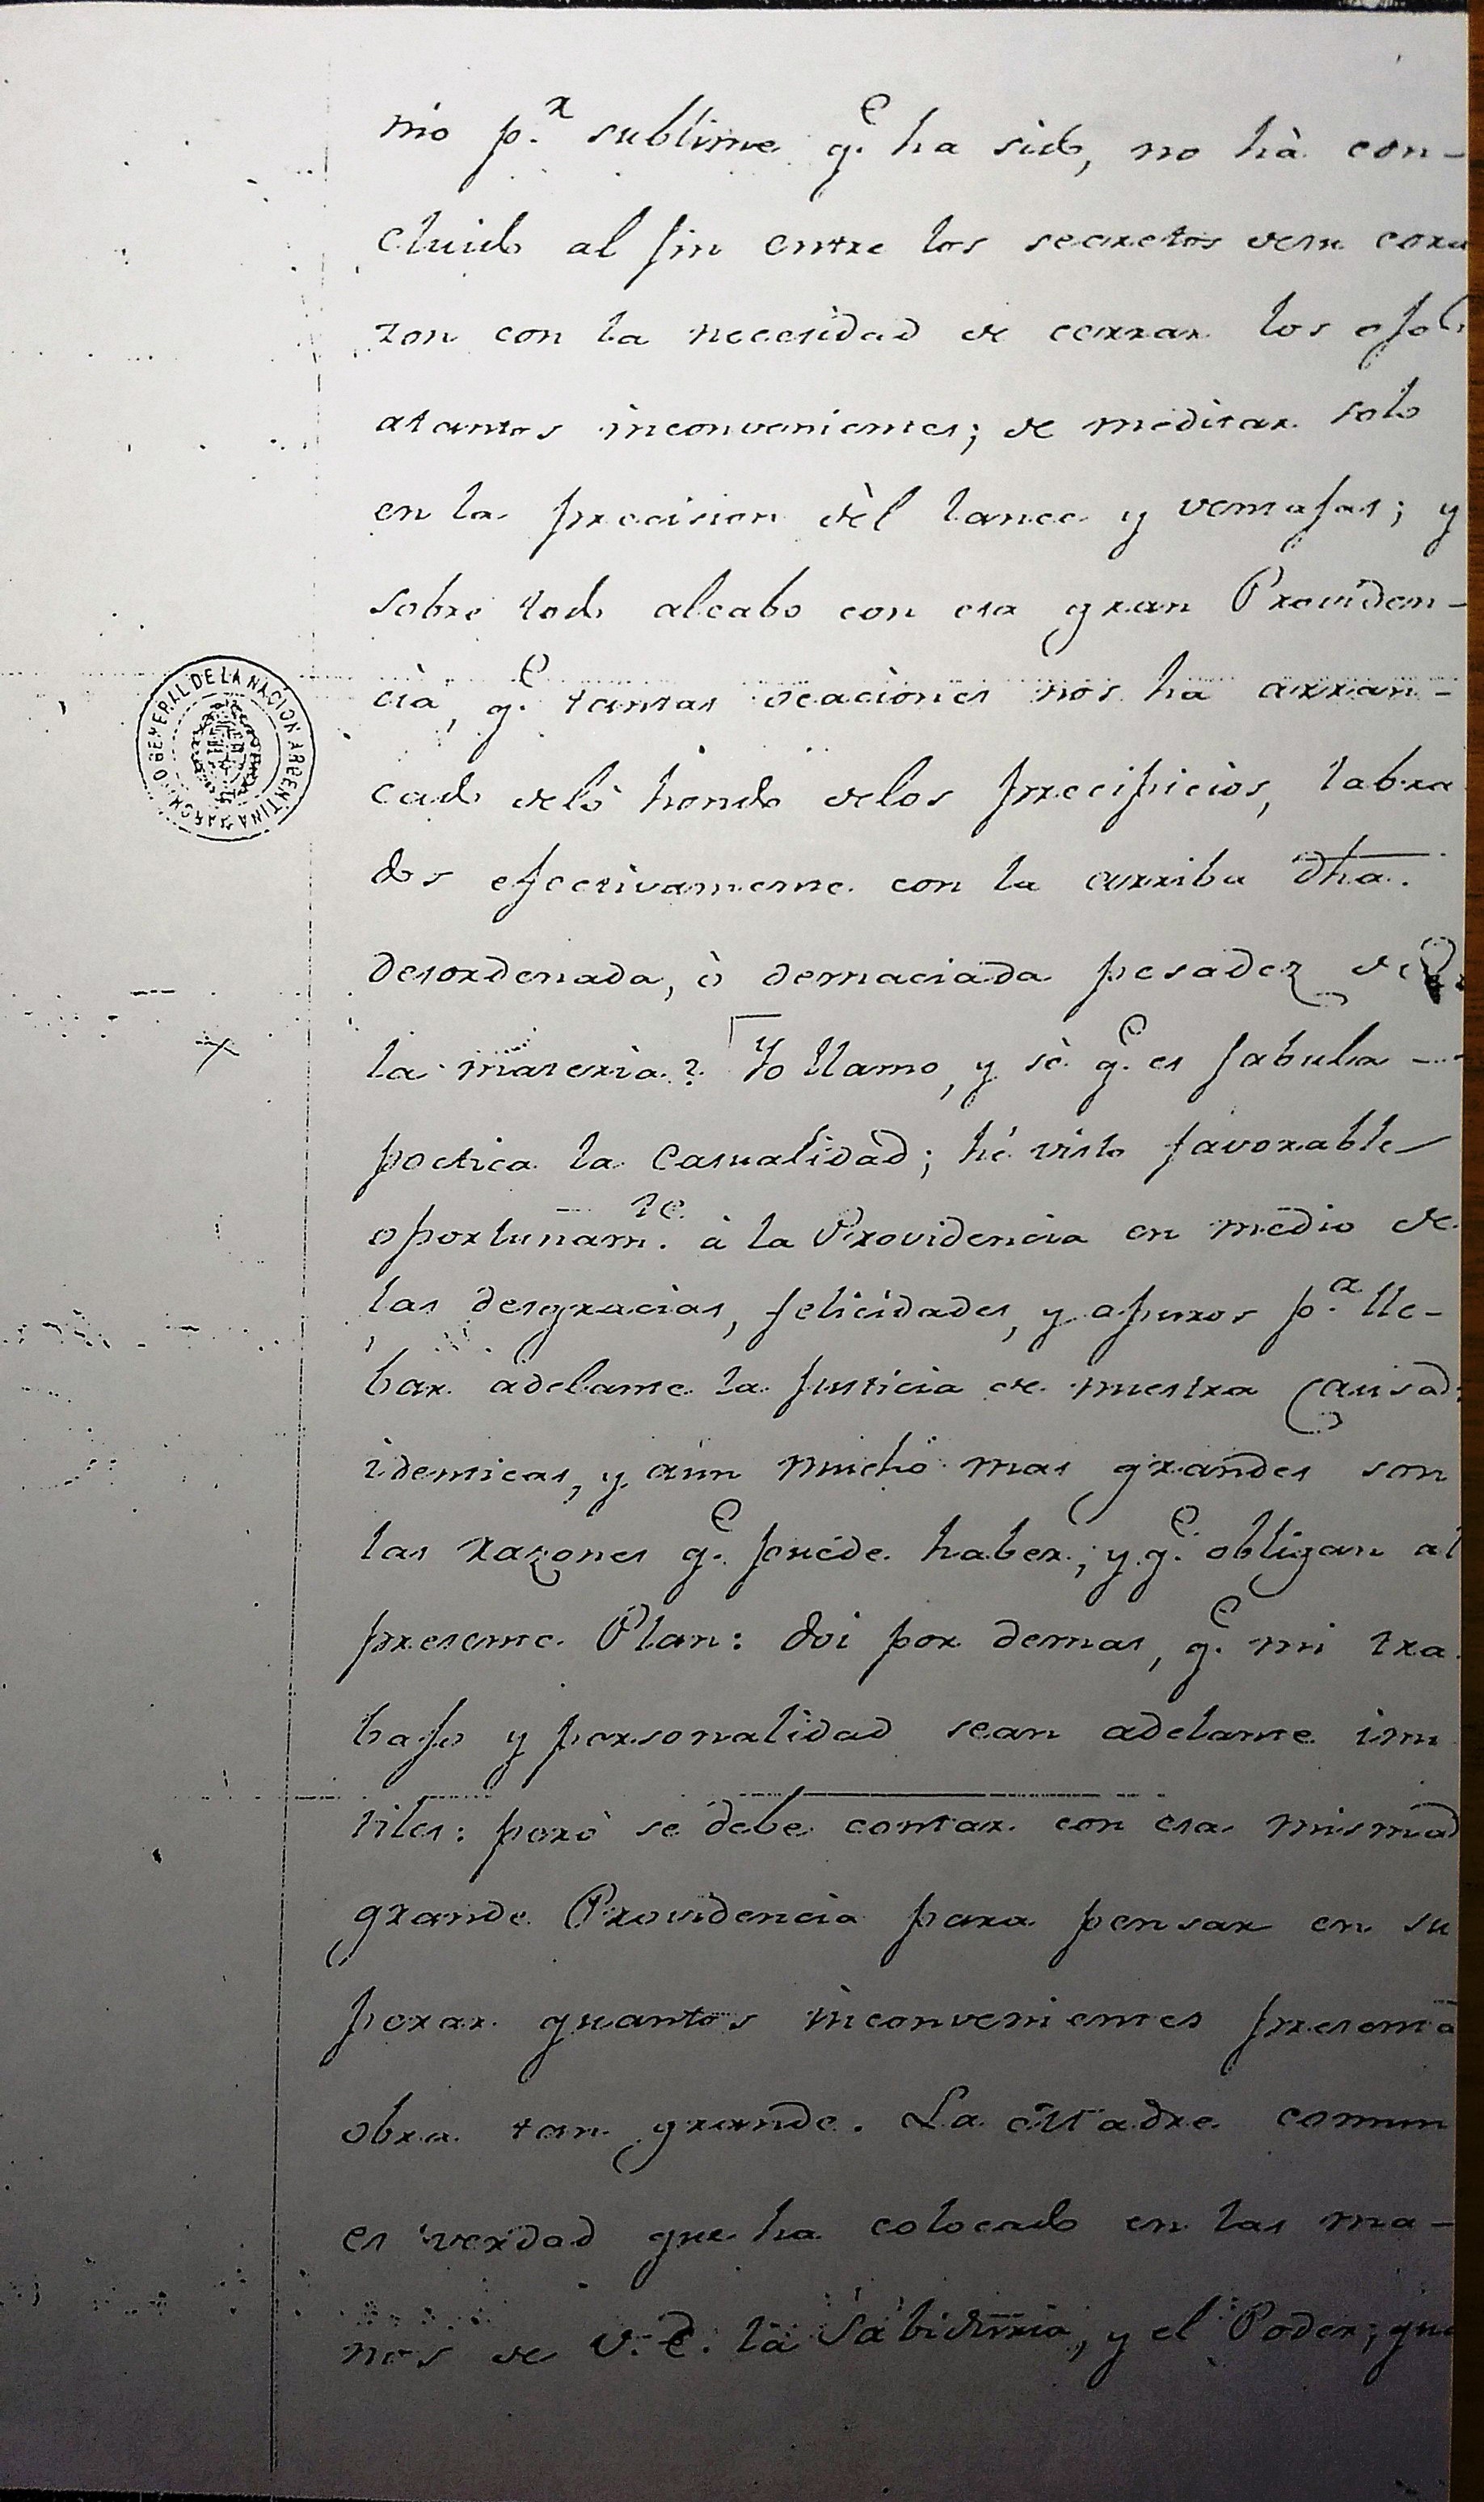 nio p.r sublime q.e ha sido, no hà con-
cluido al fin entre los secretos desu cora
zon con la necesidad de cerrar los ojos
atantos inconvenientes; de meditar solo
en la precision dèl lance y ventajas; y
sobre todo alcabo con esa gran Providen-
cia, q.e tantas ocaciones nos ha arran-
cado delo hondo delos precipicios, labra
dos efectivamente con la arriba dha.
desordenada, ò demaciada pesadez de
la materia? Yo llamo, y sè q.e es fabula
poetica la casualidad; hé visto favorable
oportunam.te à la Providencia en medio de
las desgracias, felicidades, y apuros p.a lle-
bar adelante la Justicia de nuestra Causa:
identicas, y aún mucho mas grandes son
las razones q.e puede haber, y q.e obligan al
presente Plan: doi por demas, q.e mi tra
bajo y personalidad sean adelante inu
tiles: però se debe contar con esa misma
grande Providencia para pensar en su
perar quantos inconvenientes presenta
obra tan grande. La Madre comun
es verdad que ha colocado en las ma-
nos de V.E. la Sabiduria, y el Poder; que
ARCHIVO GENERAL DE LA NACION ARGENTINA